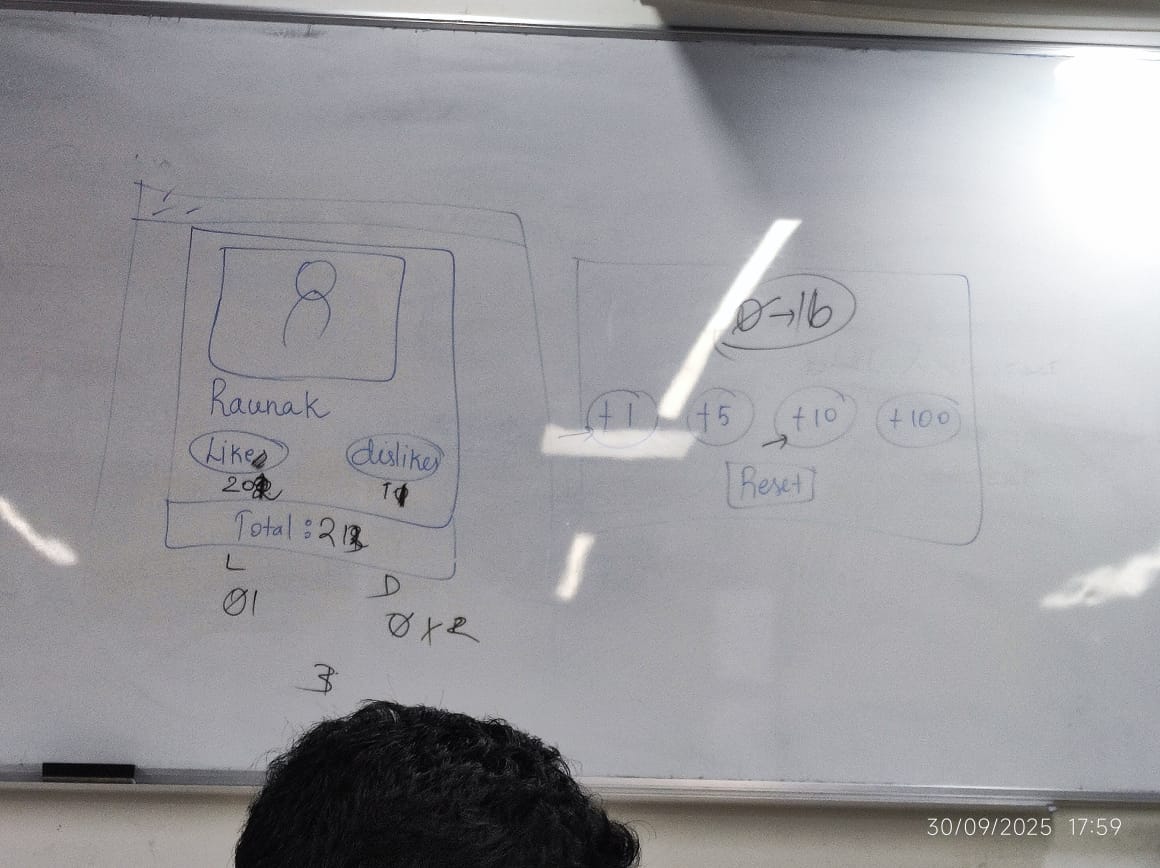 Raunak
Likes dislikes
Total : 21
L
D
01
0 1 2
3
0→16
+1 +5 +10 +100
Reset
30/09/2025 17:59